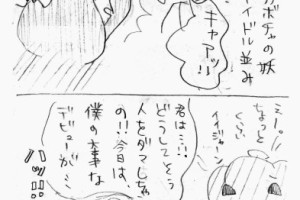 カボチャの妖
アイドル並み
キャアッ!!
えーっ!
ちょっと
くらい
イイジャーン
君は…!!
どうしてそう
人をダマしちゃ
の!!今日は、
僕の大事な
デビューが…